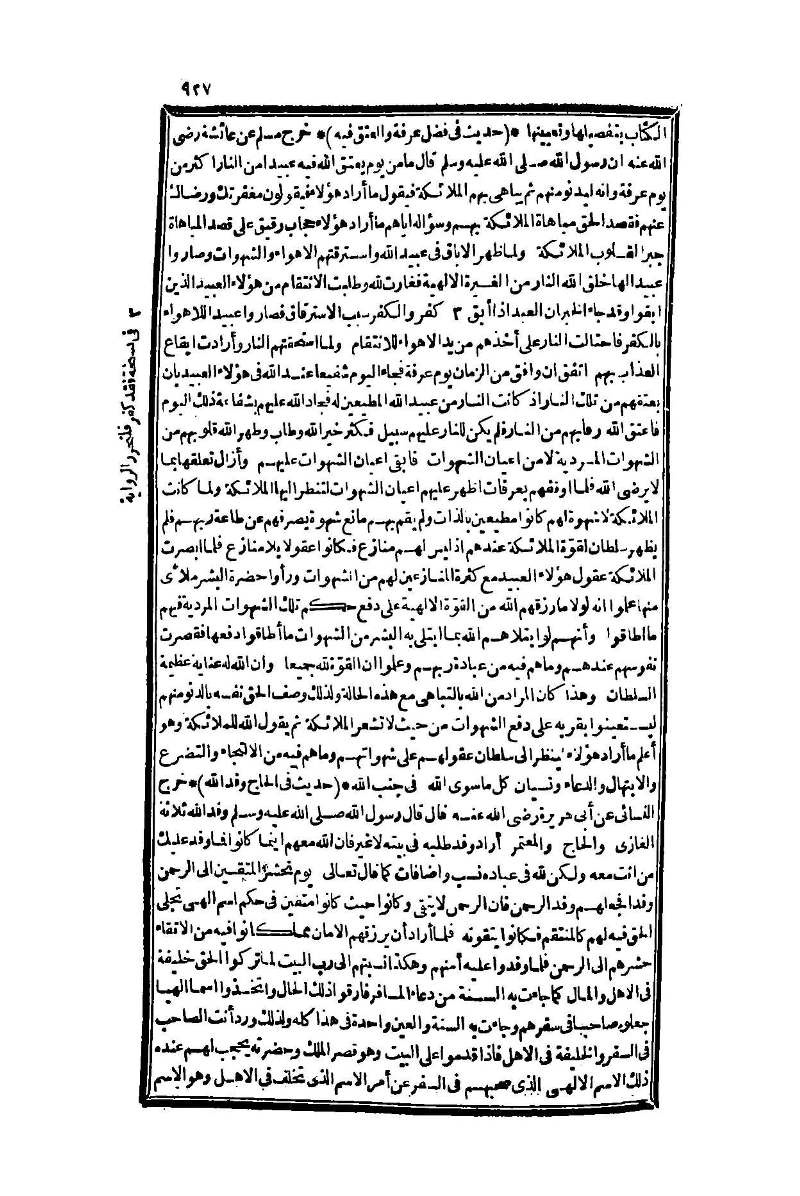 ٩٢٧
الكتاب بتفصيلها وتعيينها * (حديث في فضل عرفة والعتق فيه) * خرج مسلم عن عائشة رضى
الله عنه ان رسول الله صلى الله عليه وسلم قال ما من يوم يعتق الله فيه عبيدا من النار اكثر من
يوم عرفة وانه ليدنو منهم ثم يباهى بهم الملائكة فيقول ما أراد هؤلاء فيقولون مغفرتك ورضاك
عنهم فقصد الحق مباهاة الملائكة بهم وسؤاله اياهم ما أراد هؤلاء حجاب رقيق على قصد المباهاة
جبرا لقلوب الملائكة ولما ظهر الاباق فى عبيد الله واسترقتهم الاهواء والشهوات وصاروا
عبيد الها خلق الله النار من الغيرة الالهية فغارت لله وطلبت الانتقام من هؤلاء العبيد الذين
ابقوا وقد جاء الخبر ان العبد اذا أبق ٣ كفر والكفر سبب الاسترقاق فصاروا عبيدا للاهواء
بالكفر فاحتالت النار على أخذهم من يد الاهواء للانتقام ولما استحقتهم النار وأرادت ايقاع
العذاب بهم اتفق ان وافق من الزمان يوم عرفة فجاء اليوم شفيعا عند الله فى هؤلاء العبيد بان
يعتقهم من تلك النار اذ كانت النار من عبيد الله المطيعين له فجاد الله عليهم بشفاعة ذلك اليوم
فاعتق الله رقابهم من النار فلم يكن للنار عليهم سبيل فكثر خير الله وطاب وطهر الله قلوبهم من
الشهوات المردية لا من اعيان الشهوات فابقى اعيان الشهوات عليهم وأزال تعلقها بما
لا يرضى الله فلما اوقفهم بعرفات اظهر عليهم اعيان الشهوات لتنظر اليها الملائكة ولما كانت
الملائكة لا شهوة لهم كانوا مطيعين بالذات ولم يقم بهم مانع شهوة يصرفهم عن طاعة ربهم فلم
يظهر سلطان لقوة الملائكة عندهم اذ ليس لهم منازع فكانوا عقولا بلا منازع فلما ابصرت
الملائكة عقول هؤلاء العبيد مع كثرة المنازعين لهم من الشهوات ورأوا حضرة البشر ملأى
منها علموا انه لولا ما رزقهم الله من القوة الالهية على دفع حكم تلك الشهوات المردية فيهم
ما اطاقوا وأنهم لو ابتلاهم الله بما ابتلى به البشر من الشهوات ما أطاقوا دفعها فقصرت
نفوسهم عندهم وما هم فيه من عبادة ربهم وعلموا ان القوة لله جميعا وان الله له عناية عظيمة
السلطان وهذا كان المراد من الله بالتباهى مع هذه الحالة ولذلك وصف الحق نفسه بالدنو منهم
ليستعينوا بقربه على دفع الشهوات من حيث لا تشعر الملائكة ثم يقول الله للملائكة وهو
أعلم ما أراد هؤلاء لينظر الى سلطان عقولهم على شهواتهم وما هم فيه من الالتجاء والتضرع
والابتهال والدعاء ونسيان كل ما سوى الله فى جنب الله * (حديث فى الحاج وفد الله) * خرج
النسائى عن أبى هريرة رضى الله عنه قال قال رسول الله صلى الله عليه وسلم وفد الله ثلاثة
الغازى والحاج والمعتمر أراد وفد طلبه فى بيته لا غير فان الله معهم اينما كانوا فما وفد عليك
من انت معه ولكن لله فى عباده نسب واضافات كما قال تعالى يوم نحشر المتقين الى الرحمن
وفدا فجعلهم وفد الرحمن فان الرحمن لا يتقى وكانوا حيث كانوا متقين فى حكم اسم الهى تجلى
الحق فيه لهم كالمنتقم فكانوا يتقونه فلما أراد أن يرزقهم الامان مما كانوا فيه من الاتقاء
حشرهم الى الرحمن فلما وفدوا عليه أمنهم وهكذا نسبتهم الى رب البيت لما تركوا الحق خليفة
فى الاهل والمال كما جاءت به السنة من دعاء المسافر فارقوا ذلك الحال واتخذوا اسما الهيا
جعلوه صاحبا فى سفرهم وجاءت به السنة والعين واحدة فى هذا كله ولذلك ورد أنت الصاحب
فى السفر والخليفة فى الاهل فاذا قدموا على البيت وهو قصر الملك وحضرته يحجب لهم عنده
ذلك الاسم الالهى الذى صحبهم فى السفر عن أمر الاسم الذى تخلف فى الاهل وهو الاسم
٣ فى نسخة فقد كفر فلتحرر الرواية